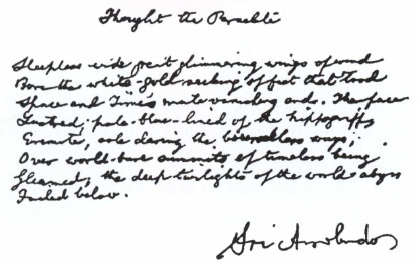 Thought the Paraclete
Sleepless wide great glimmering wings of wind
Bore the white-gold seeking of feet that trod
Space and Time's mute vanishing ends. The face
Lustred, pale-blue-lined of the hippogriff,
Eremite, sole, daring the bourneless ways,
Over world-bare summits of timeless being
Gleamed; the deep twilights of the world-abyss
Failed below.
Sri Aurobindo